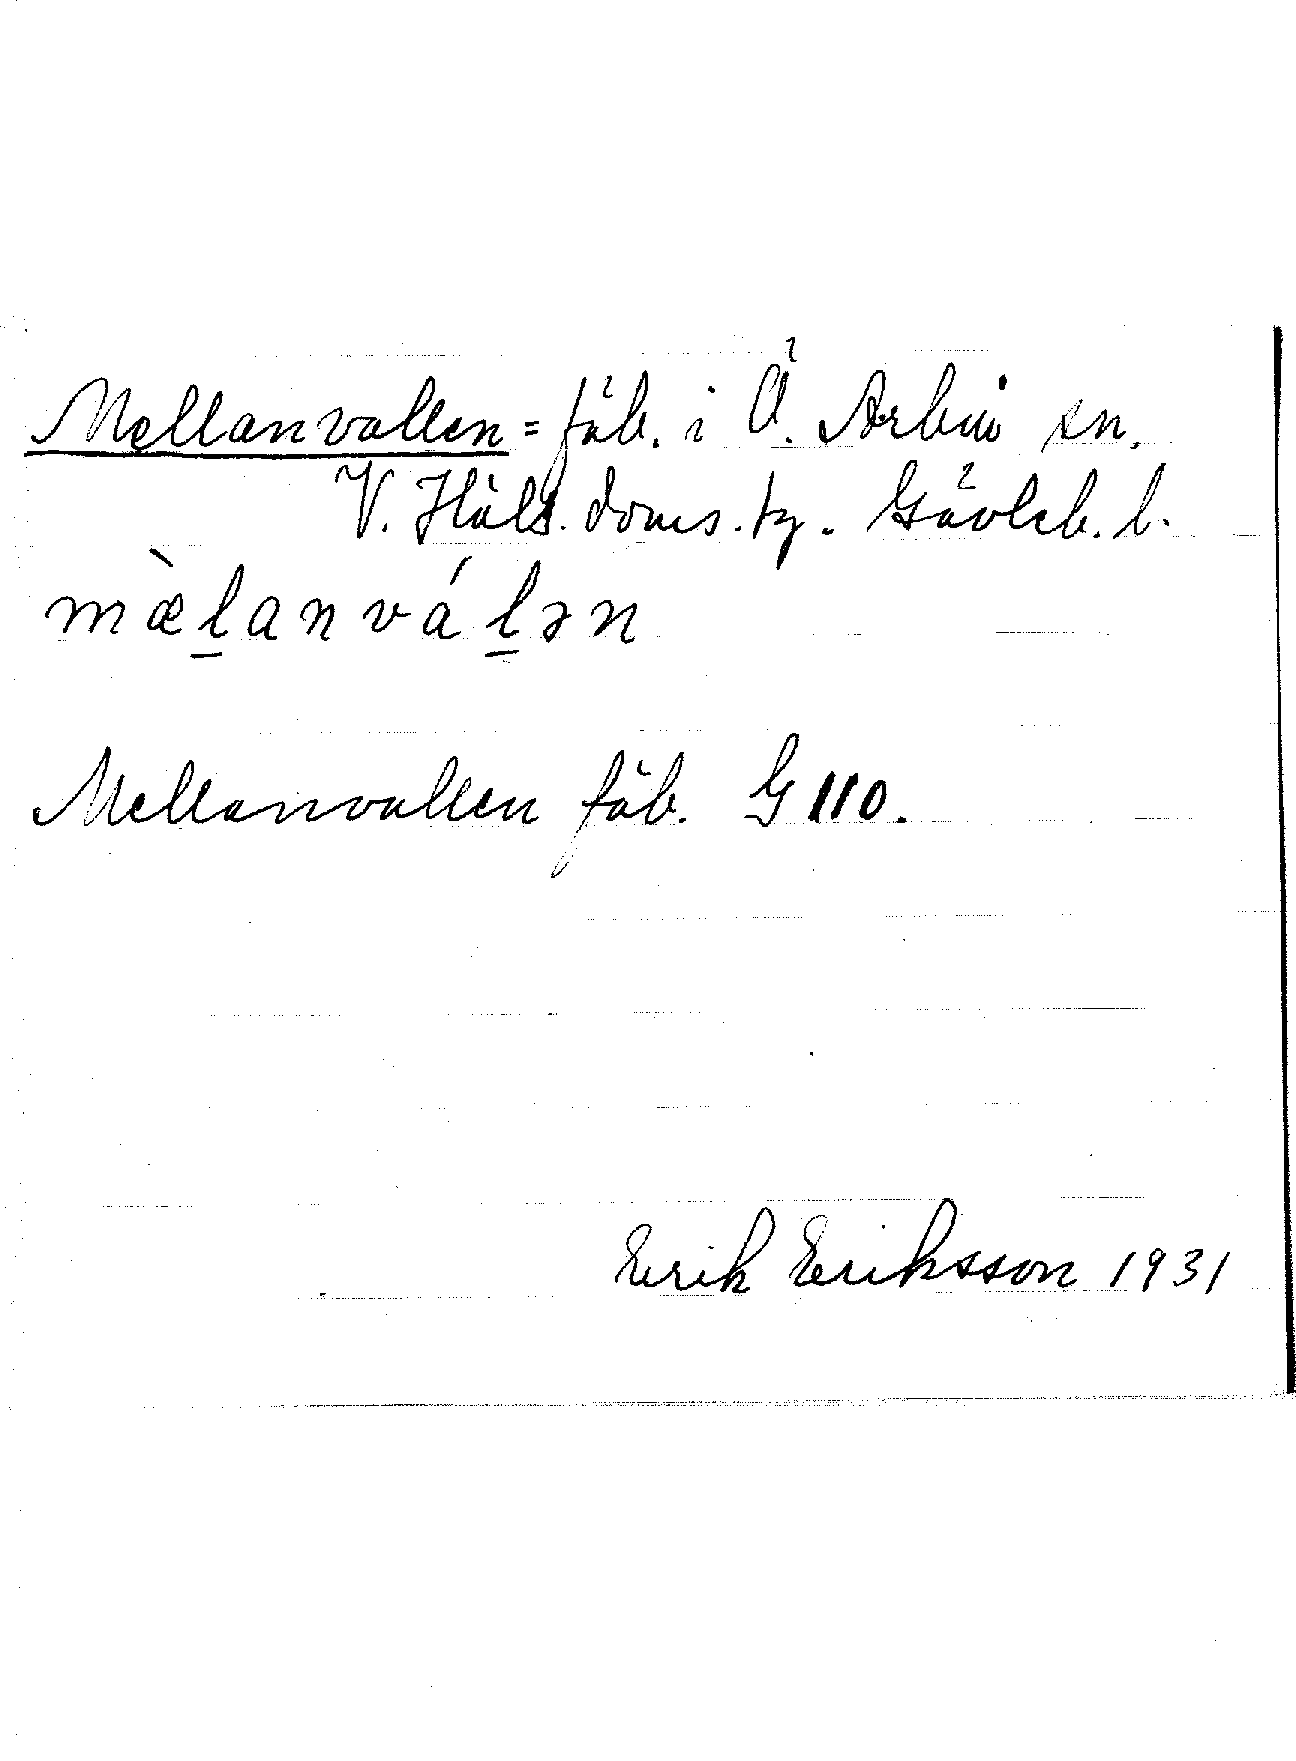 Mellanvallen = fäb. i Ö. Arbrå sn.
V. Häls. doms. tg. Gävleb. l.
mæ̀l̲anvál̲ən
Mellanvallen fäb. G 110.
Erik Eriksson 1931